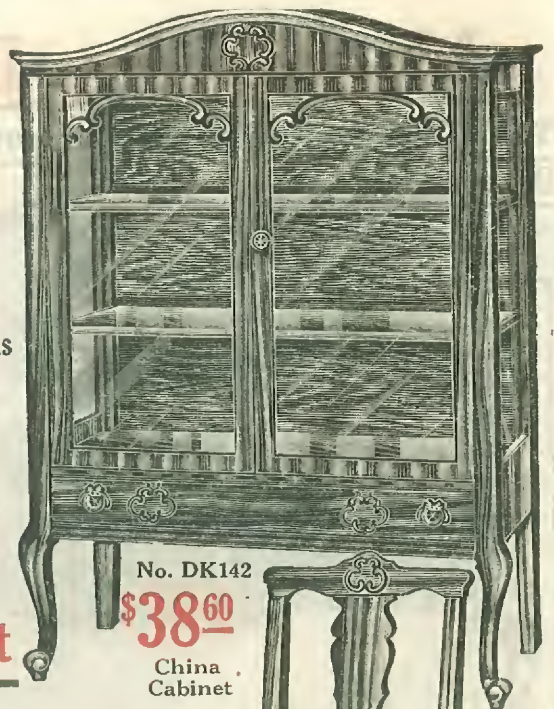 No. DK142
$38 60
China
Cabinet